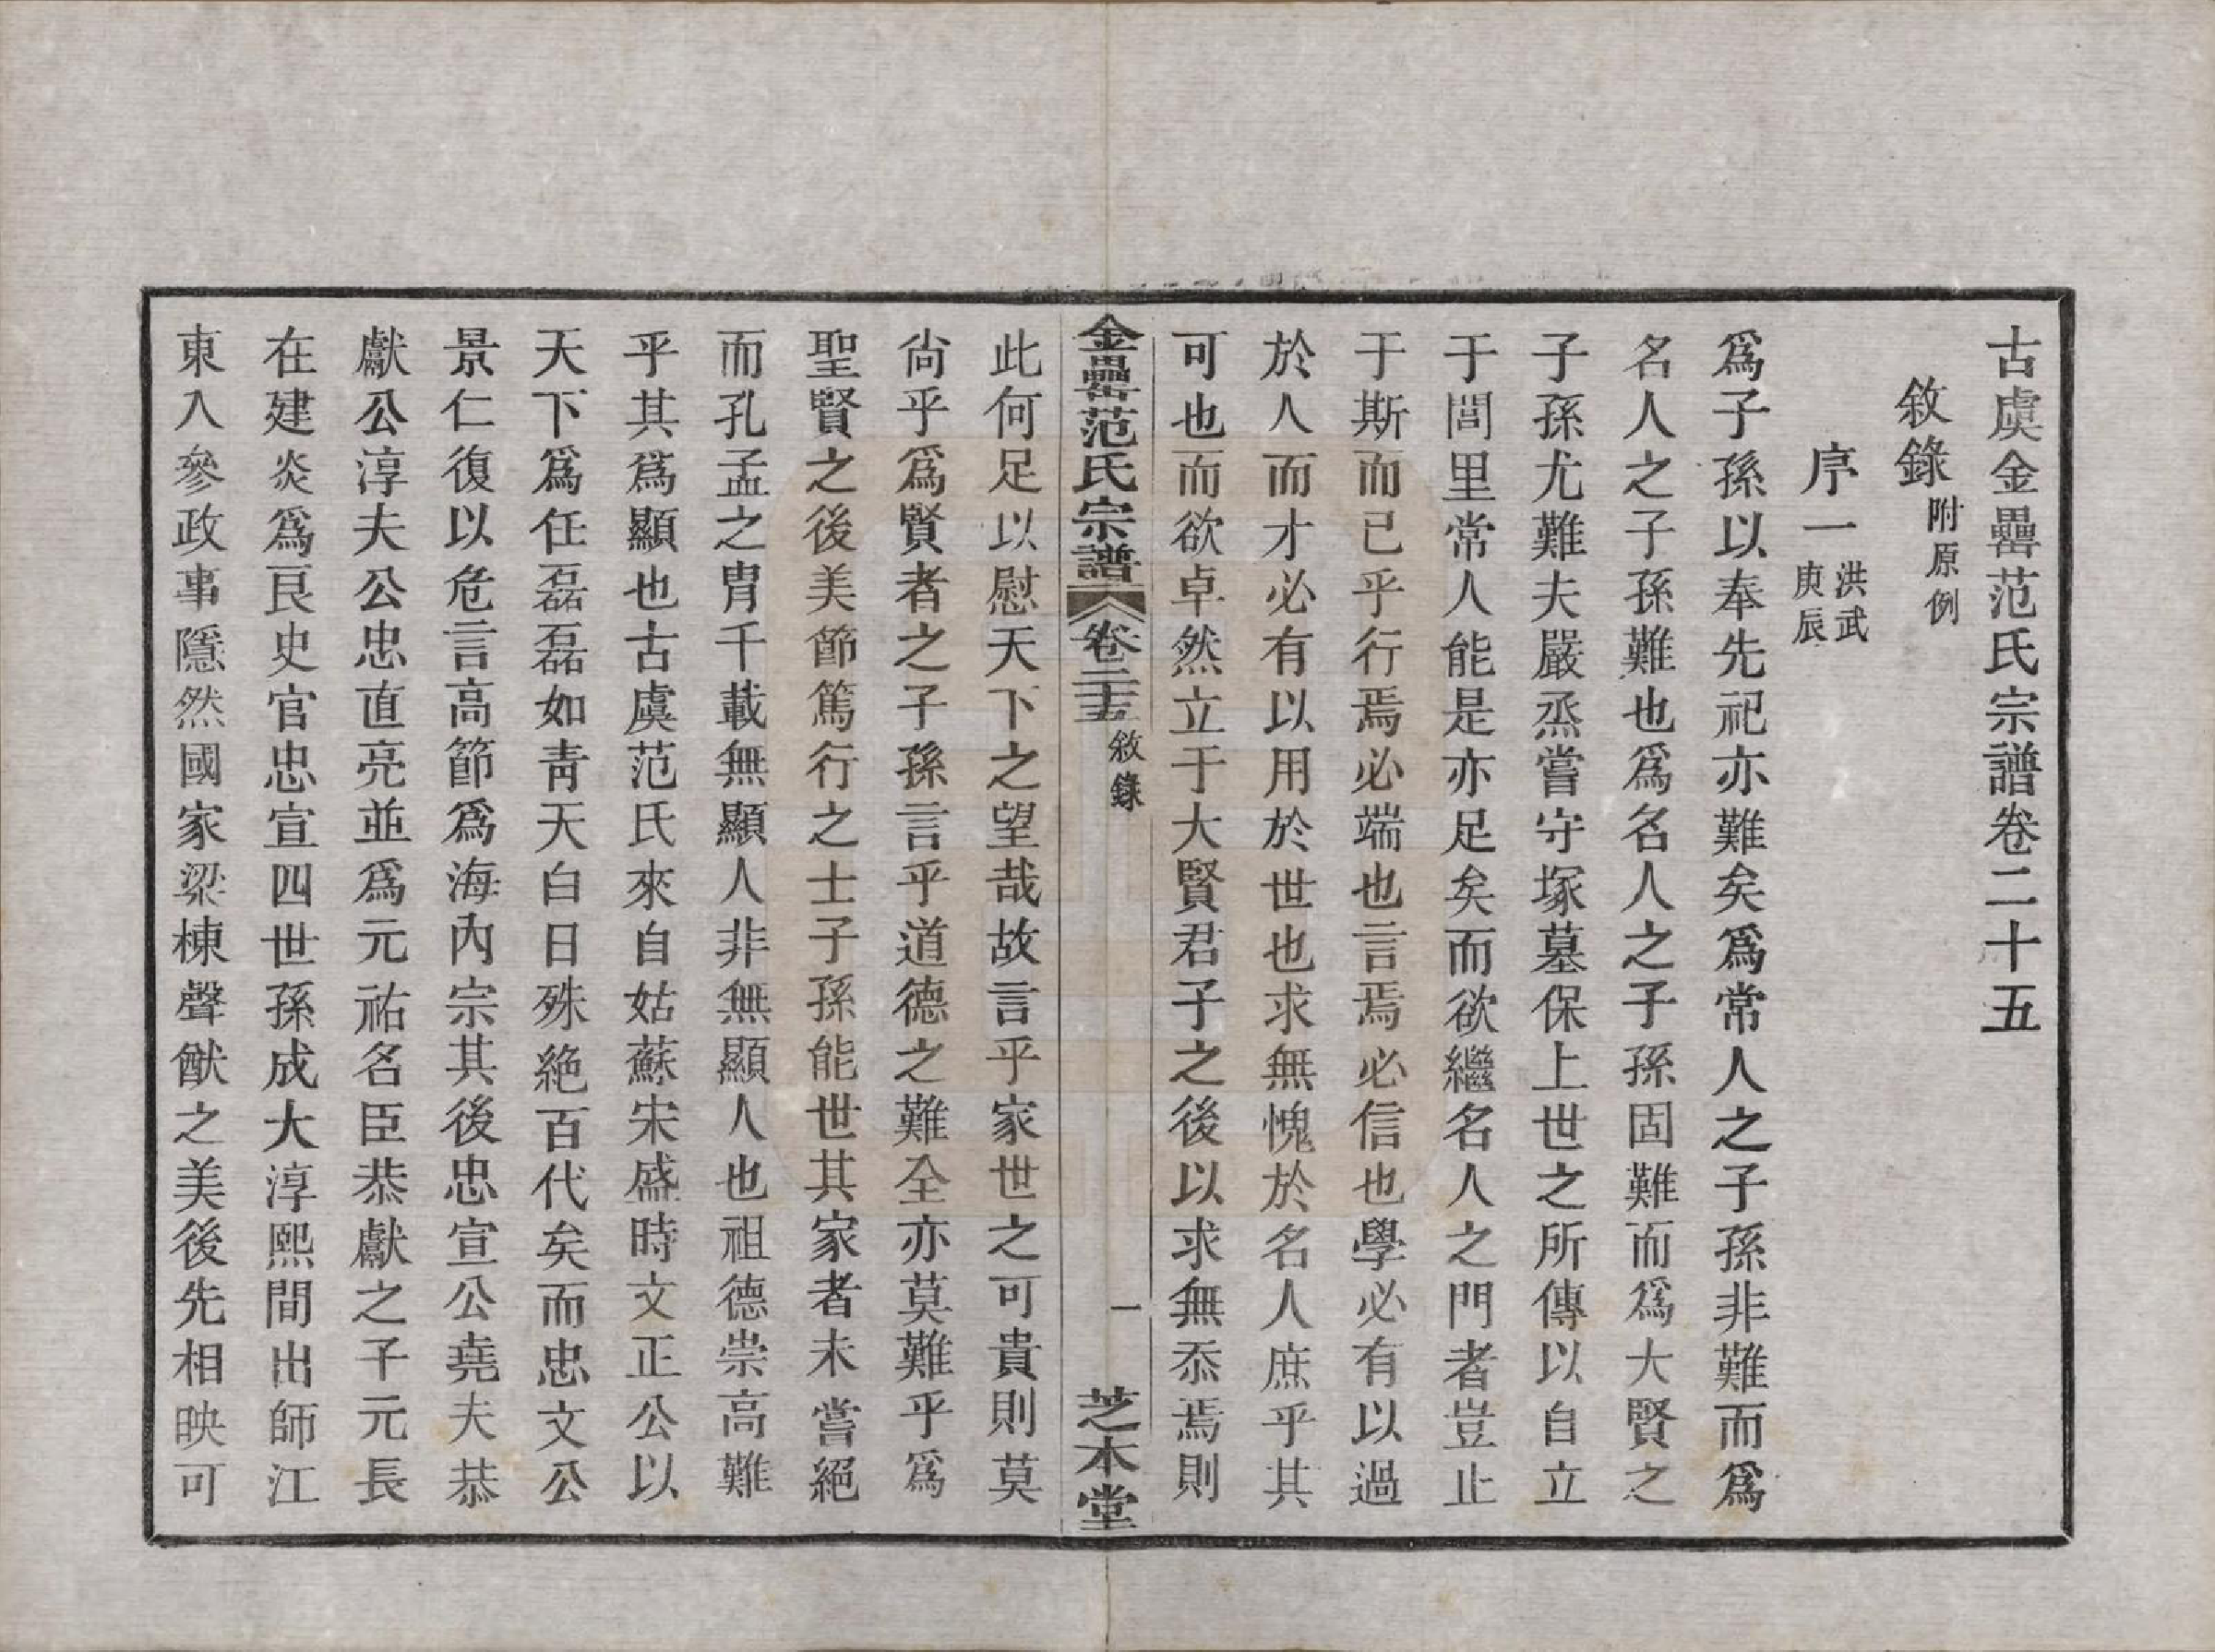 古虞金罍范氏宗譜卷二十五
敘錄附原例
序一洪武庚辰
爲子孫以奉先祀亦難矣爲常人之子孫非難而爲
名人之子孫難也爲名人之子孫固難而爲大賢之
子孫尤難夫嚴烝嘗守塚墓保上世之所傳以自立
于閭里常人能是亦足矣而欲繼名人之門者豈止
于斯而已乎行焉必端也言焉必信也學必有以過
於人而才必有以用於世也求無愧於名人庶乎其
可也而欲卓然立于大賢君子之後以求無忝焉則
金罍范氏宗譜 卷二十五 敘錄 一 芝本堂
此何足以慰天下之望哉故言乎家世之可貴則莫
尙乎爲賢者之子孫言乎道德之難全亦莫難乎爲
聖賢之後美節篤行之士子孫能世其家者未嘗絕
而孔孟之胄千載無顯人非無顯人也祖德崇高難
乎其爲顯也古虞范氏來自姑蘇宋盛時文正公以
天下爲任磊磊如靑天白日殊絶百代矣而忠文公
景仁復以危言高節爲海內宗其後忠宣公堯夫恭
獻公淳夫公忠直亮並爲元祐名臣恭獻之子元長
在建炎爲良史官忠宣四世孫成大淳熙間出師江
東入參政事隱然國家梁棟聲猷之美後先相映可